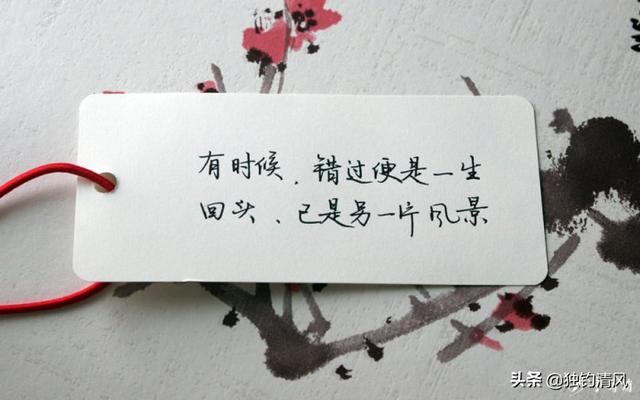 有时候，错过便是一生
回头、已是另一片风景
头条 @独钓清风